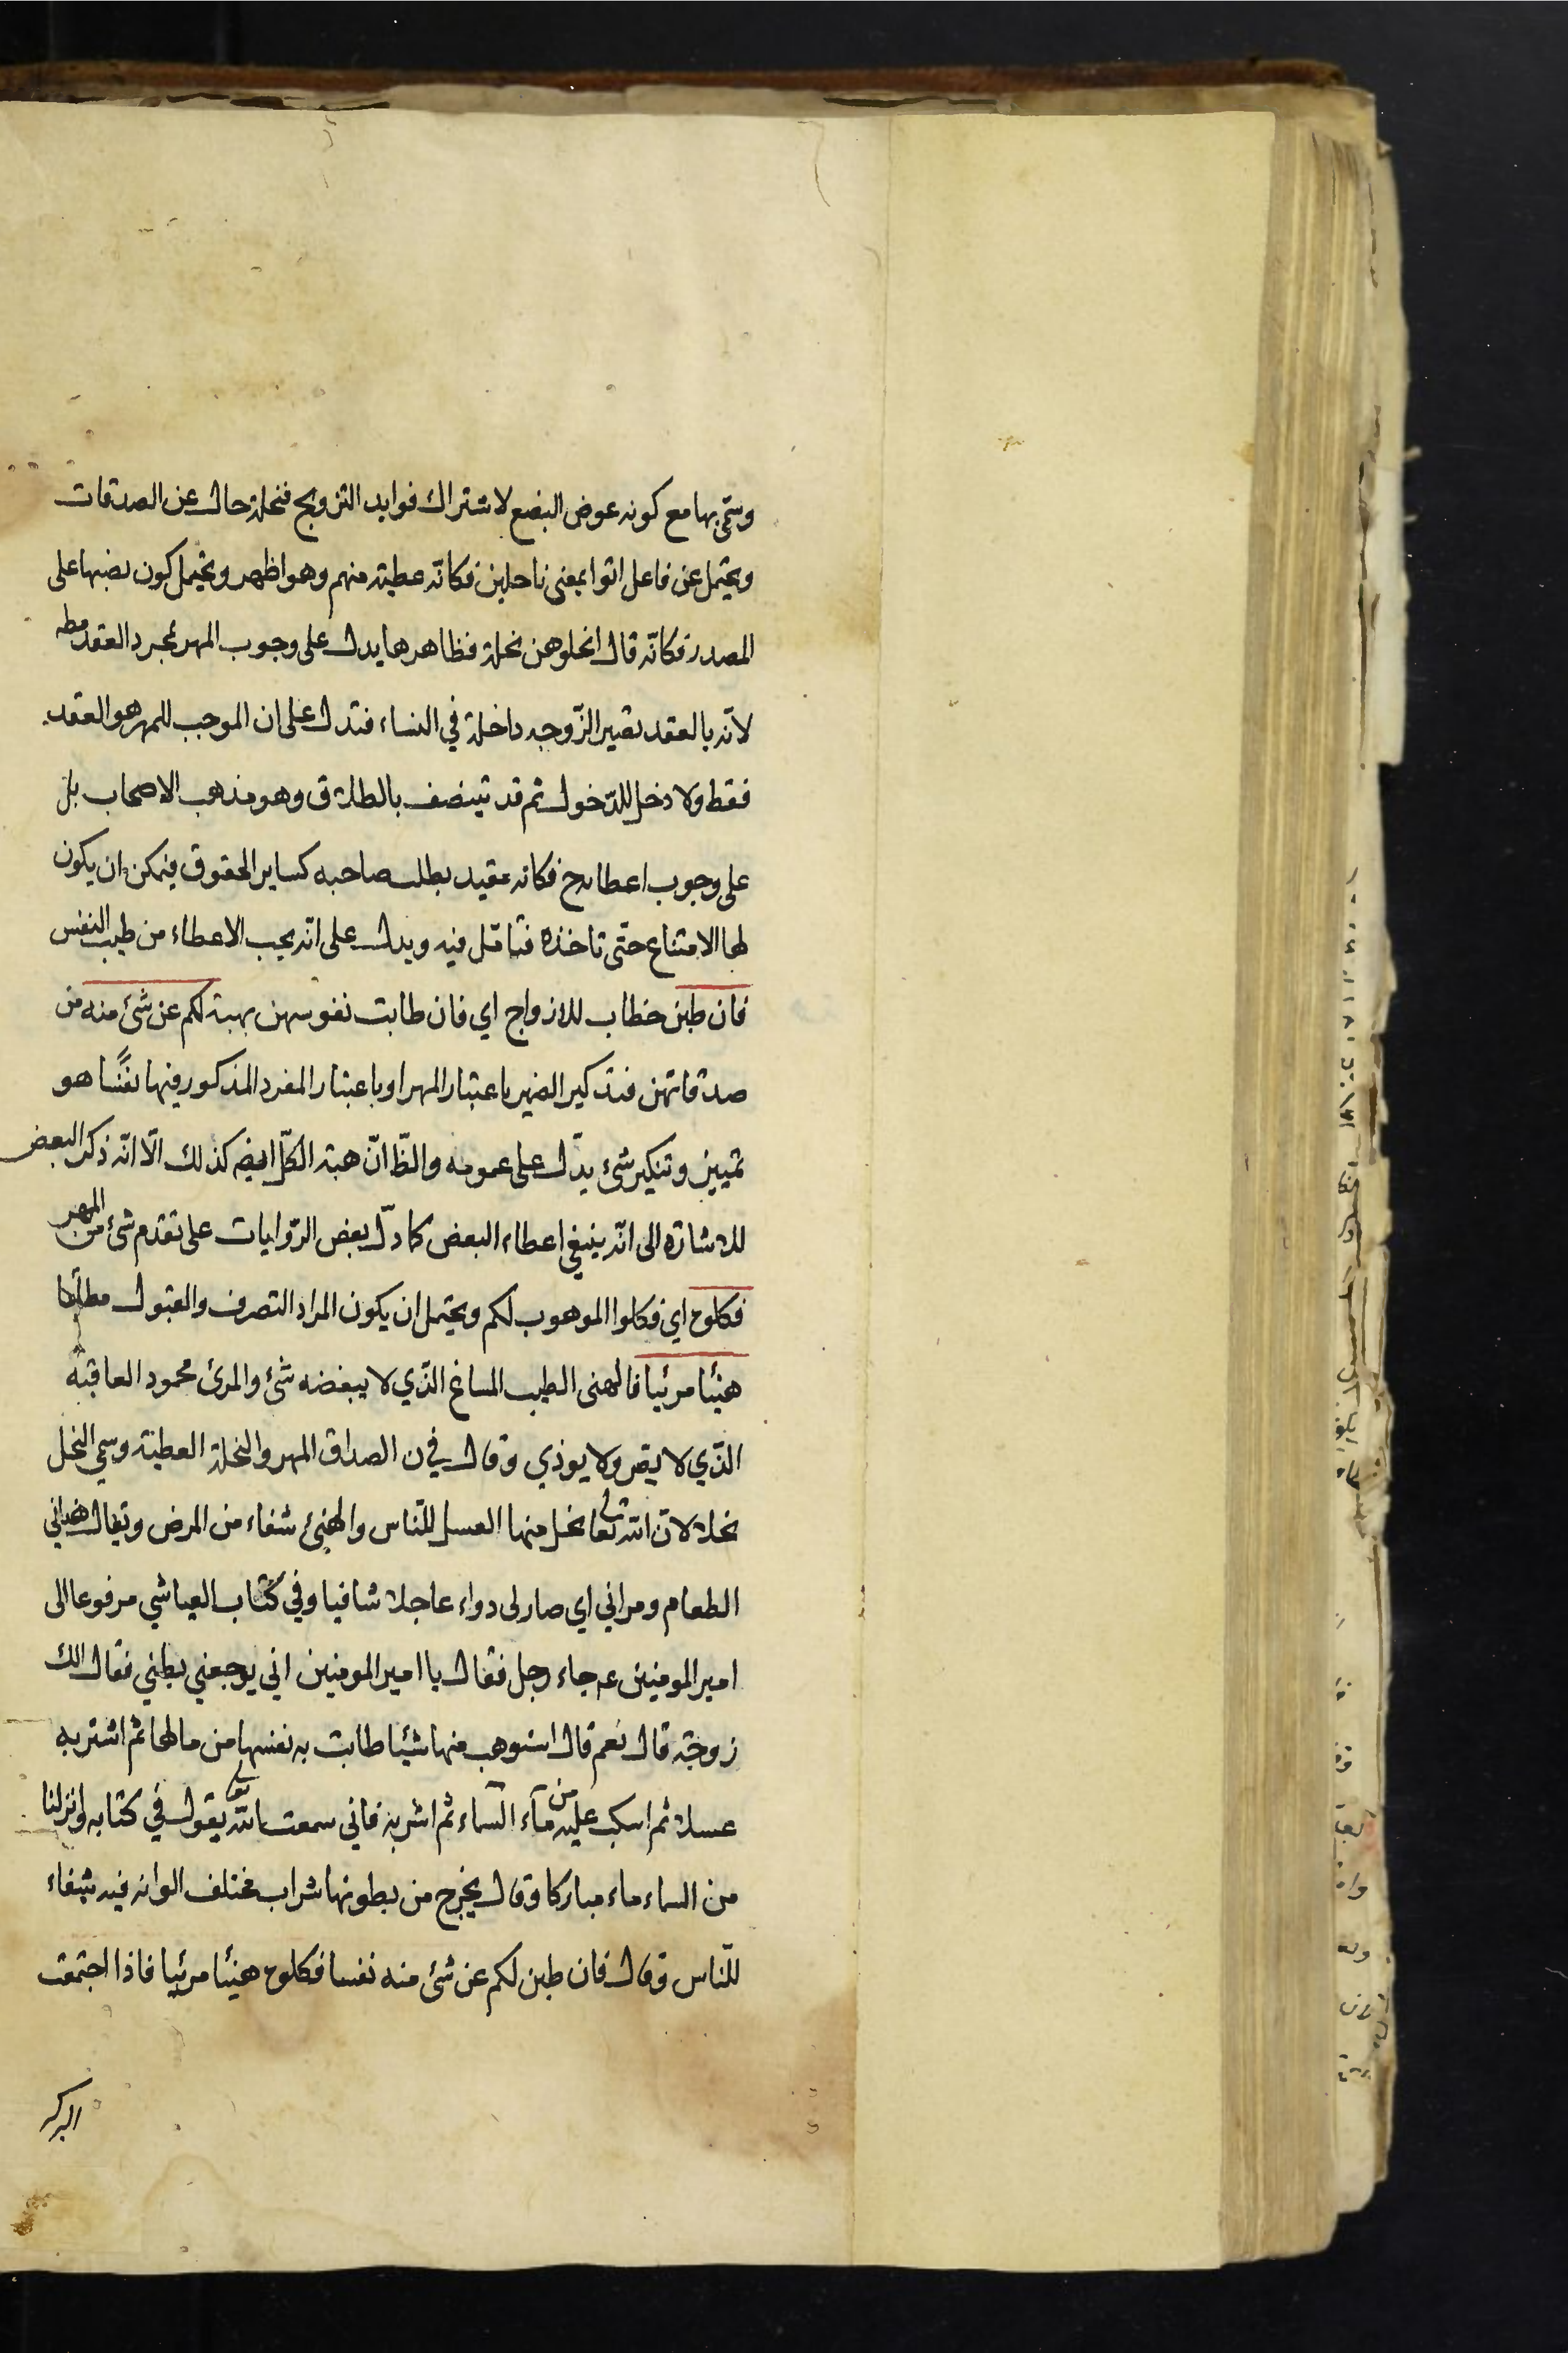 وسمي بها مع كونه عوض البضع لاشتراك فوايد التزويج فنحلة حال عن الصدقات
ويحتمل عن فاعل اتوا بمعنى ناحلين فكانه عطية منهم وهو اظهر ويحتمل كون نصبها على
المصدر فكانّه قال انحلوهن نحلة فظاهرها يدل على وجوب المهر بمجرد العقد مطه
لانّه بالعقد تصير الزّوجه داخلة في النساء فتدل على ان الموجب للمهر هو العقد
فقط ولا دخل للدّخول ثم قد يتنصف بالطلاق وهو مذهب الاصحاب بل
على وجوب اعطائه ح فكانه مقيد بطلب صاحبه كساير الحقوق فيمكن ان يكون
لها الامتناع حتّى تاخذه فتامّل فيه ويدل على انّه يجب الاعطاء من طيب النفس
فان طبن خطاب للازواج اي فان طابت نفوسهن بهبة لكم عن شئ منه من
صدقاتهن فتذكير الضمير باعتبار المهر او باعتبار المفرد المذكور فيها نفسًا هو
تمييز وتنكير شئ يدّل على عمومه والظّ انّ هبة الكلّ ايضه كذلك الّا انّه ذكر البعض
للاشارة الى انّه ينبغي اعطاء البعض كما دلّ بعض الرّوايات على تقدم شئ من المهر
فكلوه اي فكلوا الموهوب لكم ويحتمل ان يكون المراد التصرف والقبول مطلقا
هنيئا مريئا فالهنى الطيب المساغ الذّي لا يبغضه شئ والمرئ محمود العاقبة
الذّي لا يضر ولا يوذي وقال في ن الصداق المهر والنحلة العطية وسمي النحل
نحلا لانّ الله تعالى نحل منها العسل للنّاس والهنئ شفاء من المرض ويقال هنانى
الطعام ومرانى اي صار لى دواء عاجلا شافيا وفي كتاب العياشي مرفوعا الى
امير المومنين عم جاء رجل فقال يا امير المومنين اني يوجعني بطني فقال الك
زوجة قال نعم قال استوهب منها شيئا طابت به نفسها من مالها ثم اشتر به
عسلا ثم اسكب عليه من ماء السّماء ثم اشربه فاني سمعت الله تع يقول في كتابه وانزلنا
من السماء ماء مباركا وقال يخرج من بطونها شراب مختلف الوانه فيه شفاء
للنّاس وقال فان طبن لكم عن شئ منه نفسا فكلوه هنيئا مريئا فاذا اجتمعت
البركه